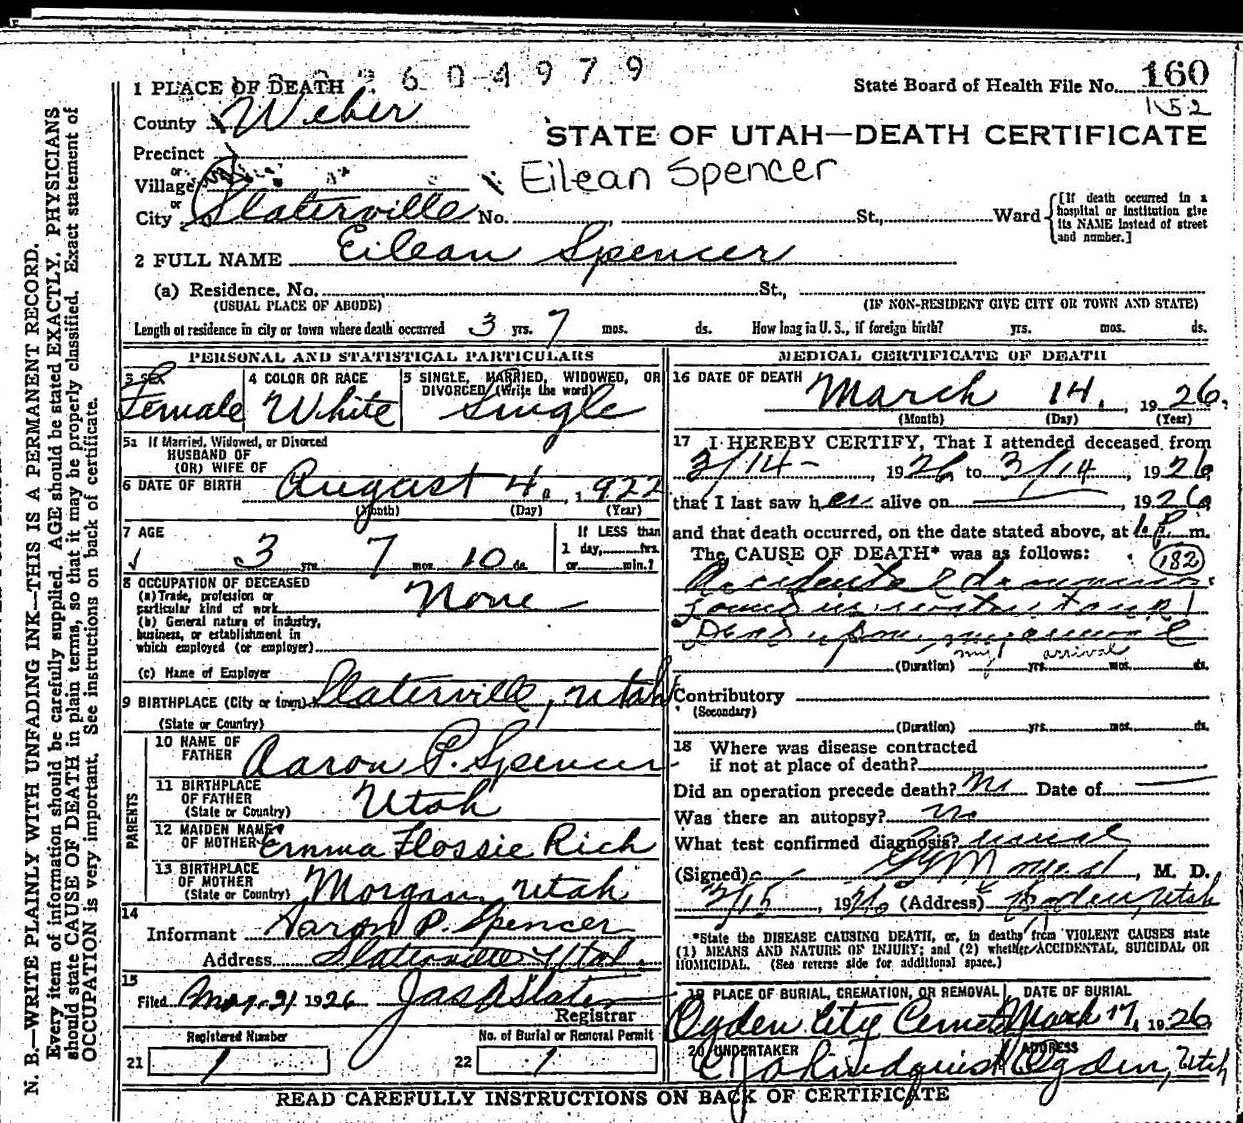 2604979
1 PLACE OF DEATH
State Board of Health File No. 160
1152
County Weber
STATE OF UTAH—DEATH CERTIFICATE
Precinct
or
Village
Eilean Spencer
or
City Slaterville No. , St., Ward
[If death occurred in a hospital or institution give its NAME instead of street and number.]
2 FULL NAME Eilean Spencer
(a) Residence, No. St.,
(USUAL PLACE OF ABODE) (IF NON-RESIDENT GIVE CITY OR TOWN AND STATE)
Length of residence in city or town where death occurred 3 yrs. 7 mos. ds. How long in U. S., if foreign birth? yrs. mos. ds.
PERSONAL AND STATISTICAL PARTICULARS
3 SEX 4 COLOR OR RACE 5 SINGLE, MARRIED, WIDOWED, OR
DIVORCED (Write the word)
Female White Single
5a If Married, Widowed, or Divorced
HUSBAND OF
(OR) WIFE OF
6 DATE OF BIRTH August 4. 1922
(Month) (Day) (Year)
7 AGE If LESS than
3 yrs. 7 mos. 10 ds. 1 day, hrs.
or min.?
8 OCCUPATION OF DECEASED
(a) Trade, profession or
particular kind of work None
(b) General nature of industry,
business, or establishment in
which employed (or employer)
(c) Name of Employer
9 BIRTHPLACE (City or town) Slaterville, Utah
(State or Country)
PARENTS
10 NAME OF
FATHER Aaron P. Spencer
11 BIRTHPLACE
OF FATHER Utah
(State or Country)
12 MAIDEN NAME
OF MOTHER Emma Flossie Rich
13 BIRTHPLACE
OF MOTHER Morgan, Utah
(State or Country)
14
Informant Aaron P. Spencer
Address Slaterville Utah.
15
Filed Mar-21 1926 Jas A Slater
Registrar
Registered Number No. of Burial or Removal Permit
21 1 22 1
MEDICAL CERTIFICATE OF DEATH
16 DATE OF DEATH March 14. 1926.
(Month) (Day) (Year)
17 I HEREBY CERTIFY, That I attended deceased from
3/14- , 1926 to 3/14 , 1926
that I last saw her alive on , 1926
and that death occurred, on the date stated above, at 1 P. m.
The CAUSE OF DEATH* was as follows: 182
Accidental drowning.
found in water tank
Dead upon my arrival
my arrival
(Duration) yrs. mos. ds.
Contributory
(Secondary)
(Duration) yrs. mos. ds.
18 Where was disease contracted
if not at place of death?
Did an operation precede death? No Date of
Was there an autopsy? no
What test confirmed diagnosis?
(Signed) , M. D.
, 1926 (Address) Ogden, Utah
*State the DISEASE CAUSING DEATH, or, in deaths from VIOLENT CAUSES state
(1) MEANS AND NATURE OF INJURY; and (2) whether ACCIDENTAL, SUICIDAL OR
HOMICIDAL. (See reverse side for additional space.)
19 PLACE OF BURIAL, CREMATION, OR REMOVAL DATE OF BURIAL
Ogden City Cemetery March 17, 1926
20 UNDERTAKER ADDRESS
Lindquist Ogden, Utah
READ CAREFULLY INSTRUCTIONS ON BACK OF CERTIFICATE
N. B.—WRITE PLAINLY WITH UNFADING INK—THIS IS A PERMANENT RECORD.
Every item of information should be carefully supplied. AGE should be stated EXACTLY. PHYSICIANS
should state CAUSE OF DEATH in plain terms, so that it may be properly classified. Exact statement of
OCCUPATION is very important. See instructions on back of certificate.